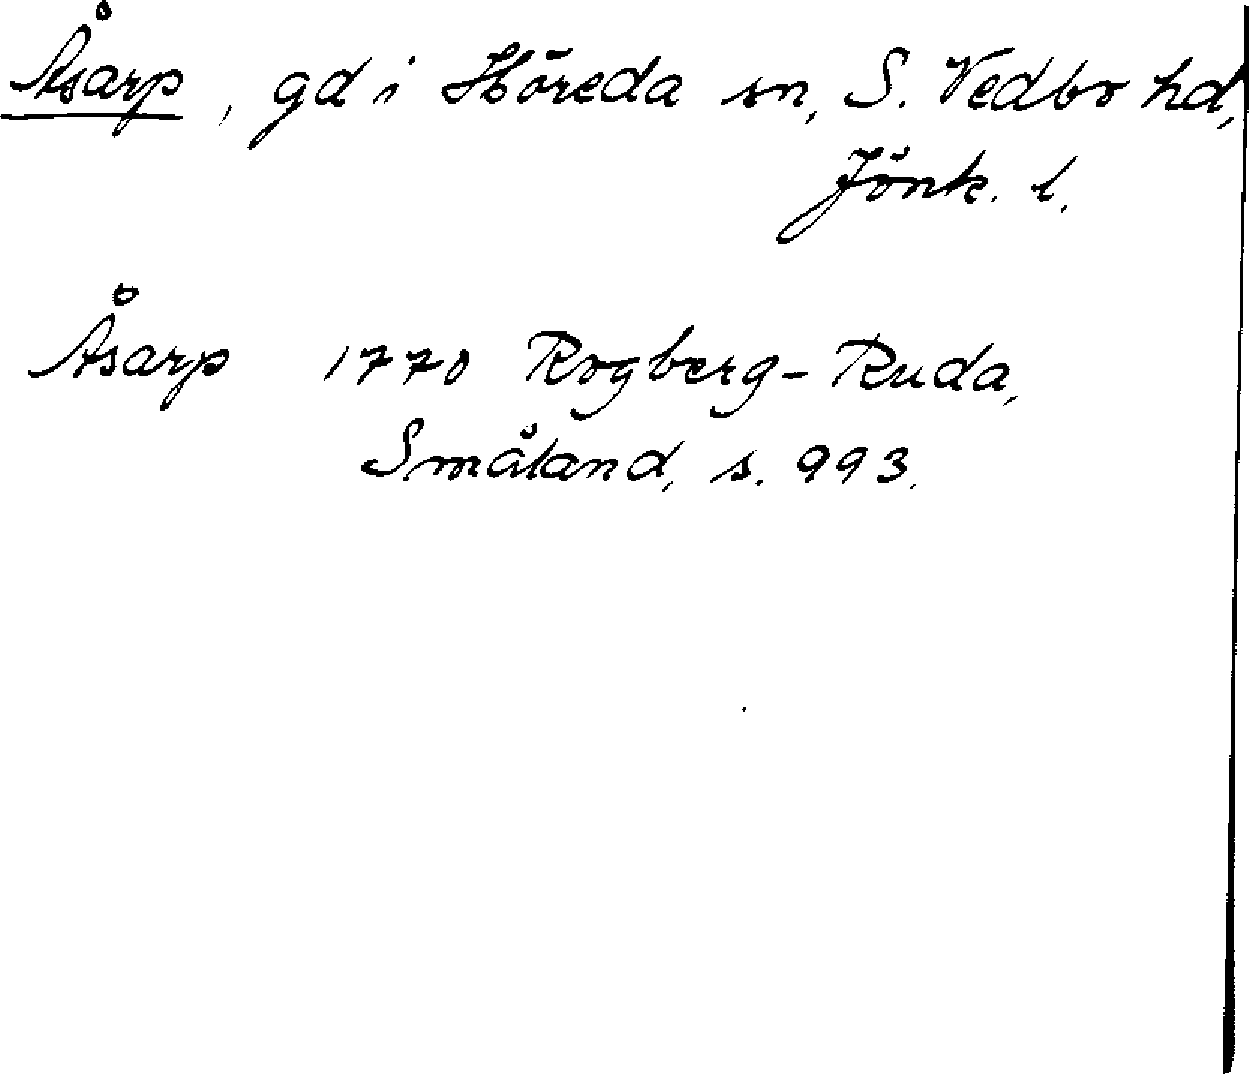 Åsarp, gd i Höreda sn, S. Vedbo hd,
Jönk. l.
Åsarp 1770 Rogberg-Ruda,
Småland, s. 993.